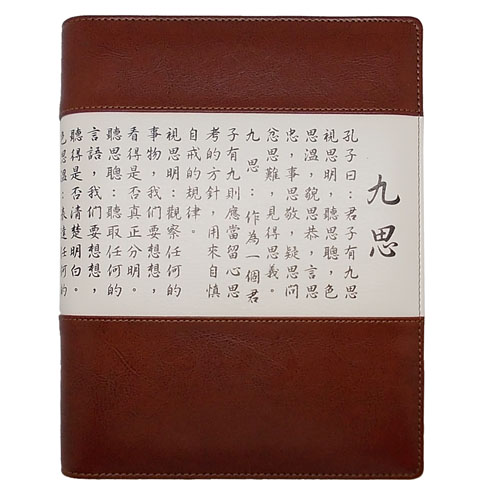 九思
孔子曰：君子有九思
視思明，聽思聰，色
思溫，貌思恭，言思
忠，事思敬，疑思問
忿思難，見得思義。
九思：作為一個君
子有九則應當留心思
考的方針，用來自慎
自戒的規律。
視思明：觀察任何的
事物，我們要想想，
看得是否真正分明。
聽思聰：聽取任何的
言語，我們要想想，
聽得是否清楚明白。
色思溫：表達任何的